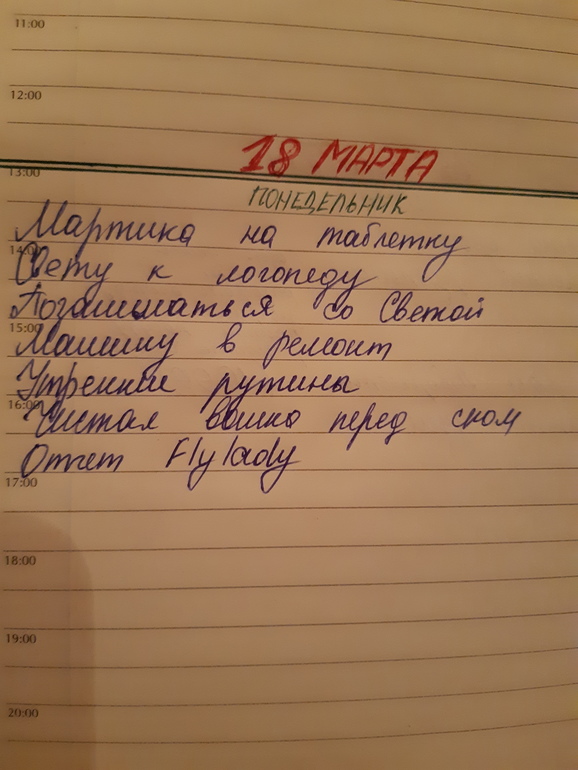 11:00
12:00
18 МАРТА
13:00
ПОНЕДЕЛЬНИК
Мартика на таблетку
14:00
Свету к логопеду
Позаниматься со Светой
15:00
Машину в ремонт
Утренние рутины
16:00
Чистая кошка перед сном
Отчет Flylady
17:00
18:00
19:00
20:00